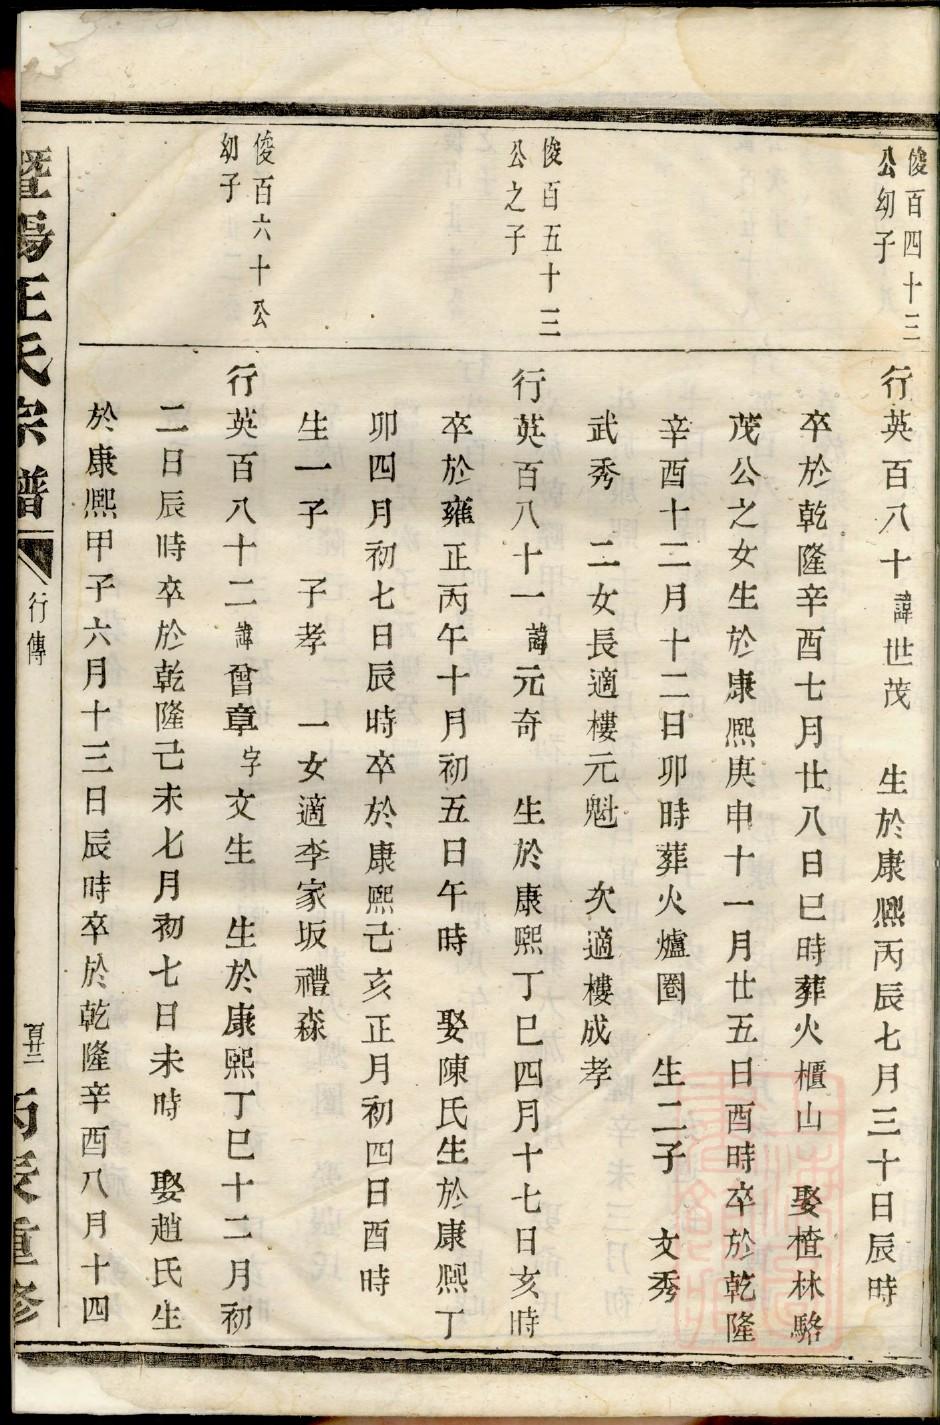 俊百四十三
公幼子
行英百八十諱世茂　生於康熙丙辰七月三十日辰時
卒於乾隆辛酉七月廿八日巳時葬火櫃山　娶楂林駱
茂公之女生於康熙庚申十一月廿五日酉時卒於乾隆
辛酉十二月十二日卯時葬火爐圈　生二子　文秀
武秀　二女長適樓元魁　次適樓成孝
俊百五十三
公之子
行英百八十一諱元奇　生於康熙丁巳四月十七日亥時
卒於雍正丙午十月初五日午時　娶陳氏生於康熙丁
卯四月初七日辰時卒於康熙己亥正月初四日酉時
生一子　子孝　一女適李家坂禮森
俊百六十公
幼子
行英百八十二諱曾章字文生　生於康熙丁巳十二月初
二日辰時卒於乾隆己未七月初七日未時　娶趙氏生
於康熙甲子六月十三日辰時卒於乾隆辛酉八月十四
暨陽王氏宗譜　行傳　百廿二　丙辰重修